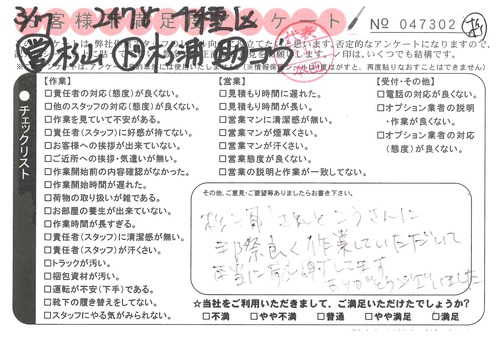 お客様満足度アンケート
No 047302
3/7
営 杉山
チェックリスト
【作業】
□責任者の対応(態度)が良くない。
□他のスタッフの対応(態度)が良くない。
□作業を見ていて不安がある。
□責任者(スタッフ)に好感が持てない。
□お客様への挨拶が出来ていない。
□ご近所への挨拶・気遣いが無い。
□作業開始前の内容確認がなかった。
□作業開始時間が遅れた。
□荷物の取り扱いが雑である。
□お部屋の養生が出来ていない。
□作業時間が長すぎる。
□責任者(スタッフ)に清潔感が無い。
□責任者(スタッフ)が汗くさい。
□トラックが汚い。
□梱包資材が汚い。
□運転が不安(下手)である。
□靴下の履き替えをしてない。
□スタッフにやる気がみられない。
【営業】
□見積もり時間に遅れた。
□見積もり時間が長い。
□営業マンに清潔感が無い。
□営業マンが煙草くさい。
□営業マンが汗くさい。
□営業態度が良くない。
□営業の説明と作業が一致してない。
【受付・その他】
□電話の対応が良くない。
□オプション業者の説明
・作業が良くない。
□オプション業者の対応
(態度)が良くない。
その他、ご意見・ご要望等ありましたらお書き下さい。
手際良く作業していただいて
本当に感謝してます
ありがとうございました
☆当社をご利用いただきまして、ご満足いただけたでしょうか?
□不満 □やや不満 □普通 □やや満足 □満足